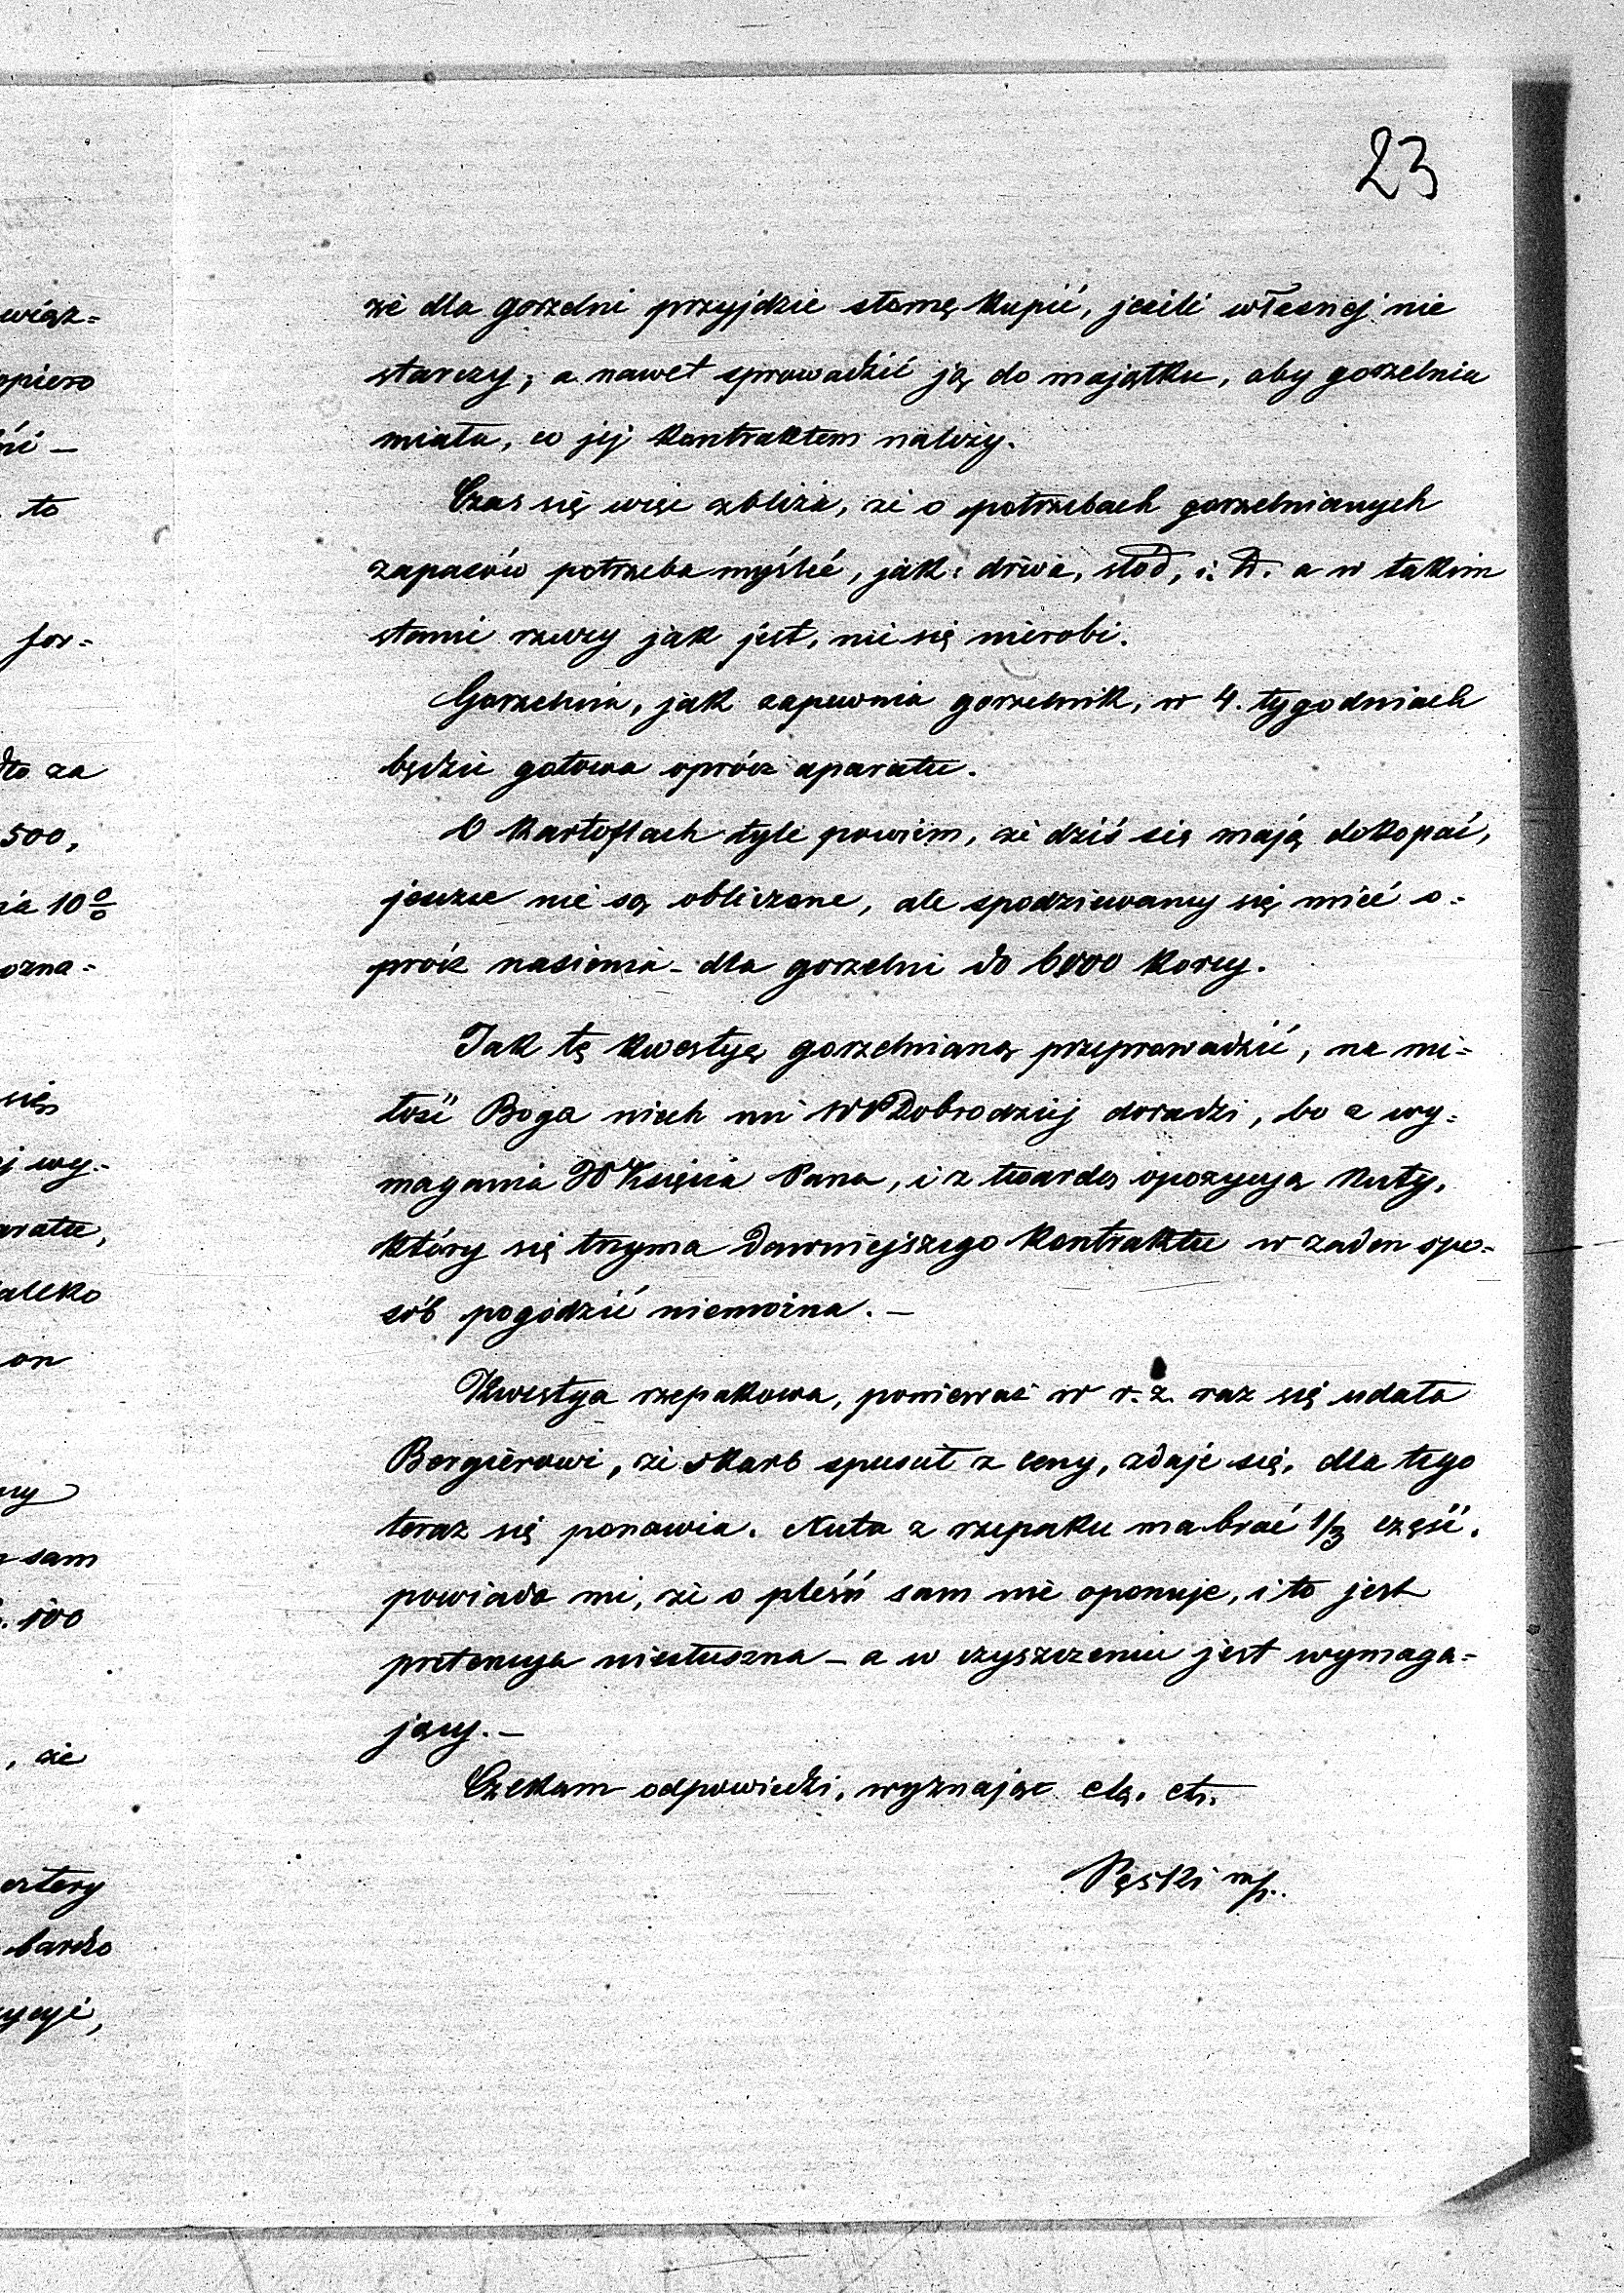 23
że dla gorzelni przyjdzie słomę kupić, jeżeli własnej nie
starczy, a nawet sprowadzić ją do majątku, aby gorzelnia
miała, co jej kontraktem należy.
Czas się więc zbliża, że o potrzebach gorzelnianych
zapasów potrzeba myśleć, jak: drwa, słód, i. t. d. a w takim
stanie rzeczy jak jest, nic się nierobi.
Gorzelnia, jak zapewnia gorzelnik, w 4. tygodniach
będzie gotowa oprócz aparatu.
O kartoflach tyle powiem, że dziś się mają dokopać,
jeszcze nie są obliczone, ale spodziewamy się mieć o=
prócz nasienia – dla gorzelni do 6000 korcy.
Jak tę kwestyę gorzelnianą przeprowadzić, na mi=
łość Boga niech mi WP Dobrodziej doradzi, bo z wy=
magania JO Księcia Pana, i z twardą opozycyą Nuty,
który się trzyma dawniejszego kontraktu w żaden spo=
sób pogodzić niemożna. –
Kwestya rzepakowa, ponieważ w r. z. raz się udała
Bergierowi, że skarb spuścił z ceny, zdaje się, dla tego
teraz się ponawia. Nuta z rzepaku ma brać 1/3 część,
powiada mi, że o pleśń sam nie oponuje, i to jest
pretensya niesłuszna – a w czyszczeniu jest wymaga=
jący. –
Czekam odpowiedzi, wyznając etc. etc.
Pęski mp.
wiąz=
opiero
to
for=
za
500,
10 %
ozna=
się
wy=
aratu,
aleko
on
sam
100
, że
cztery
bardzo